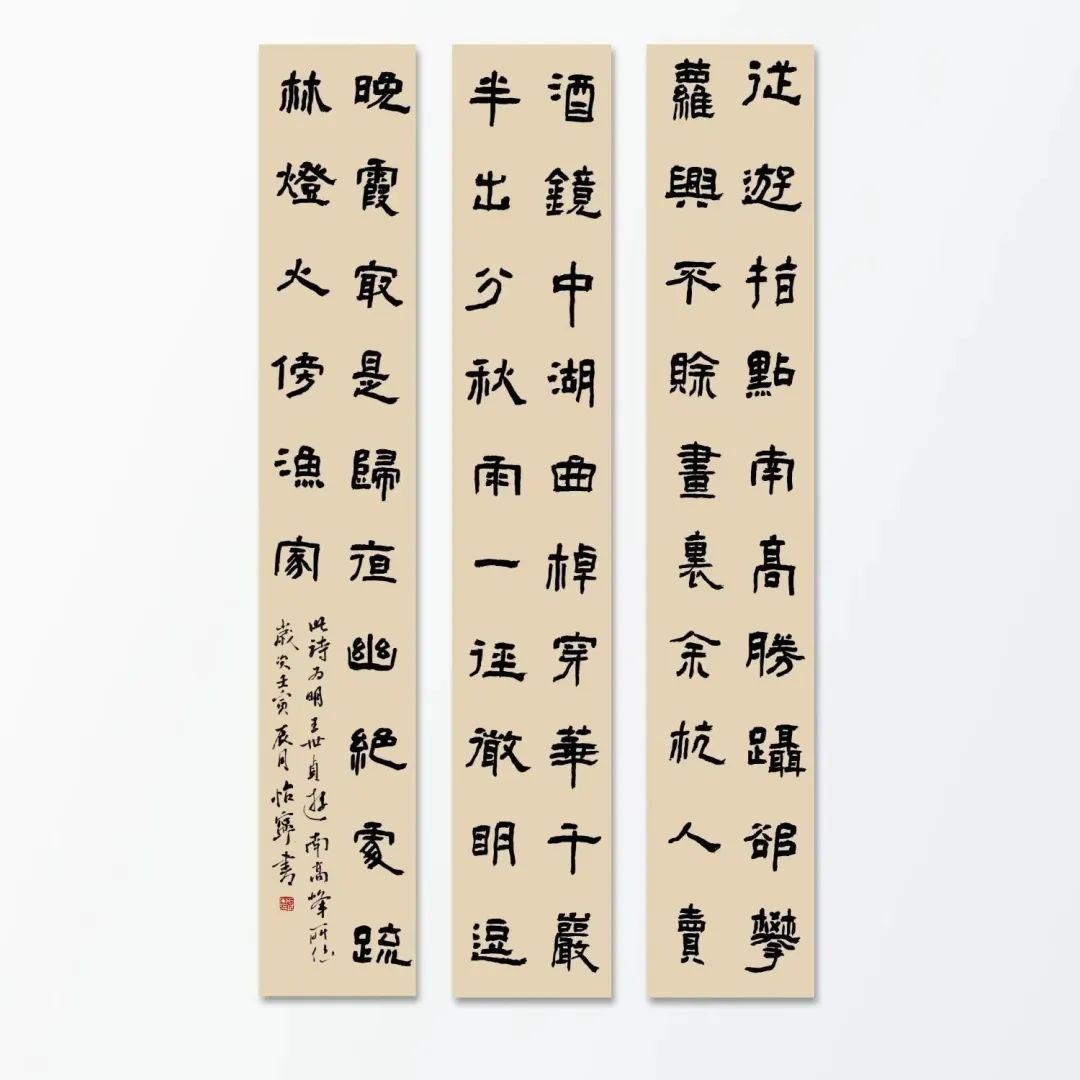 從遊指點南高勝躡郤攀
蘿興不賒畫裏余杭人賣
酒鏡中湖曲棹穿華千巖
半出分秋雨一徑微明逗
晚霞最是歸夜幽絕處疏
林燈火傍漁家
此詩为明王世貞遊南高峰所作
歲次壬寅辰月怡寧書